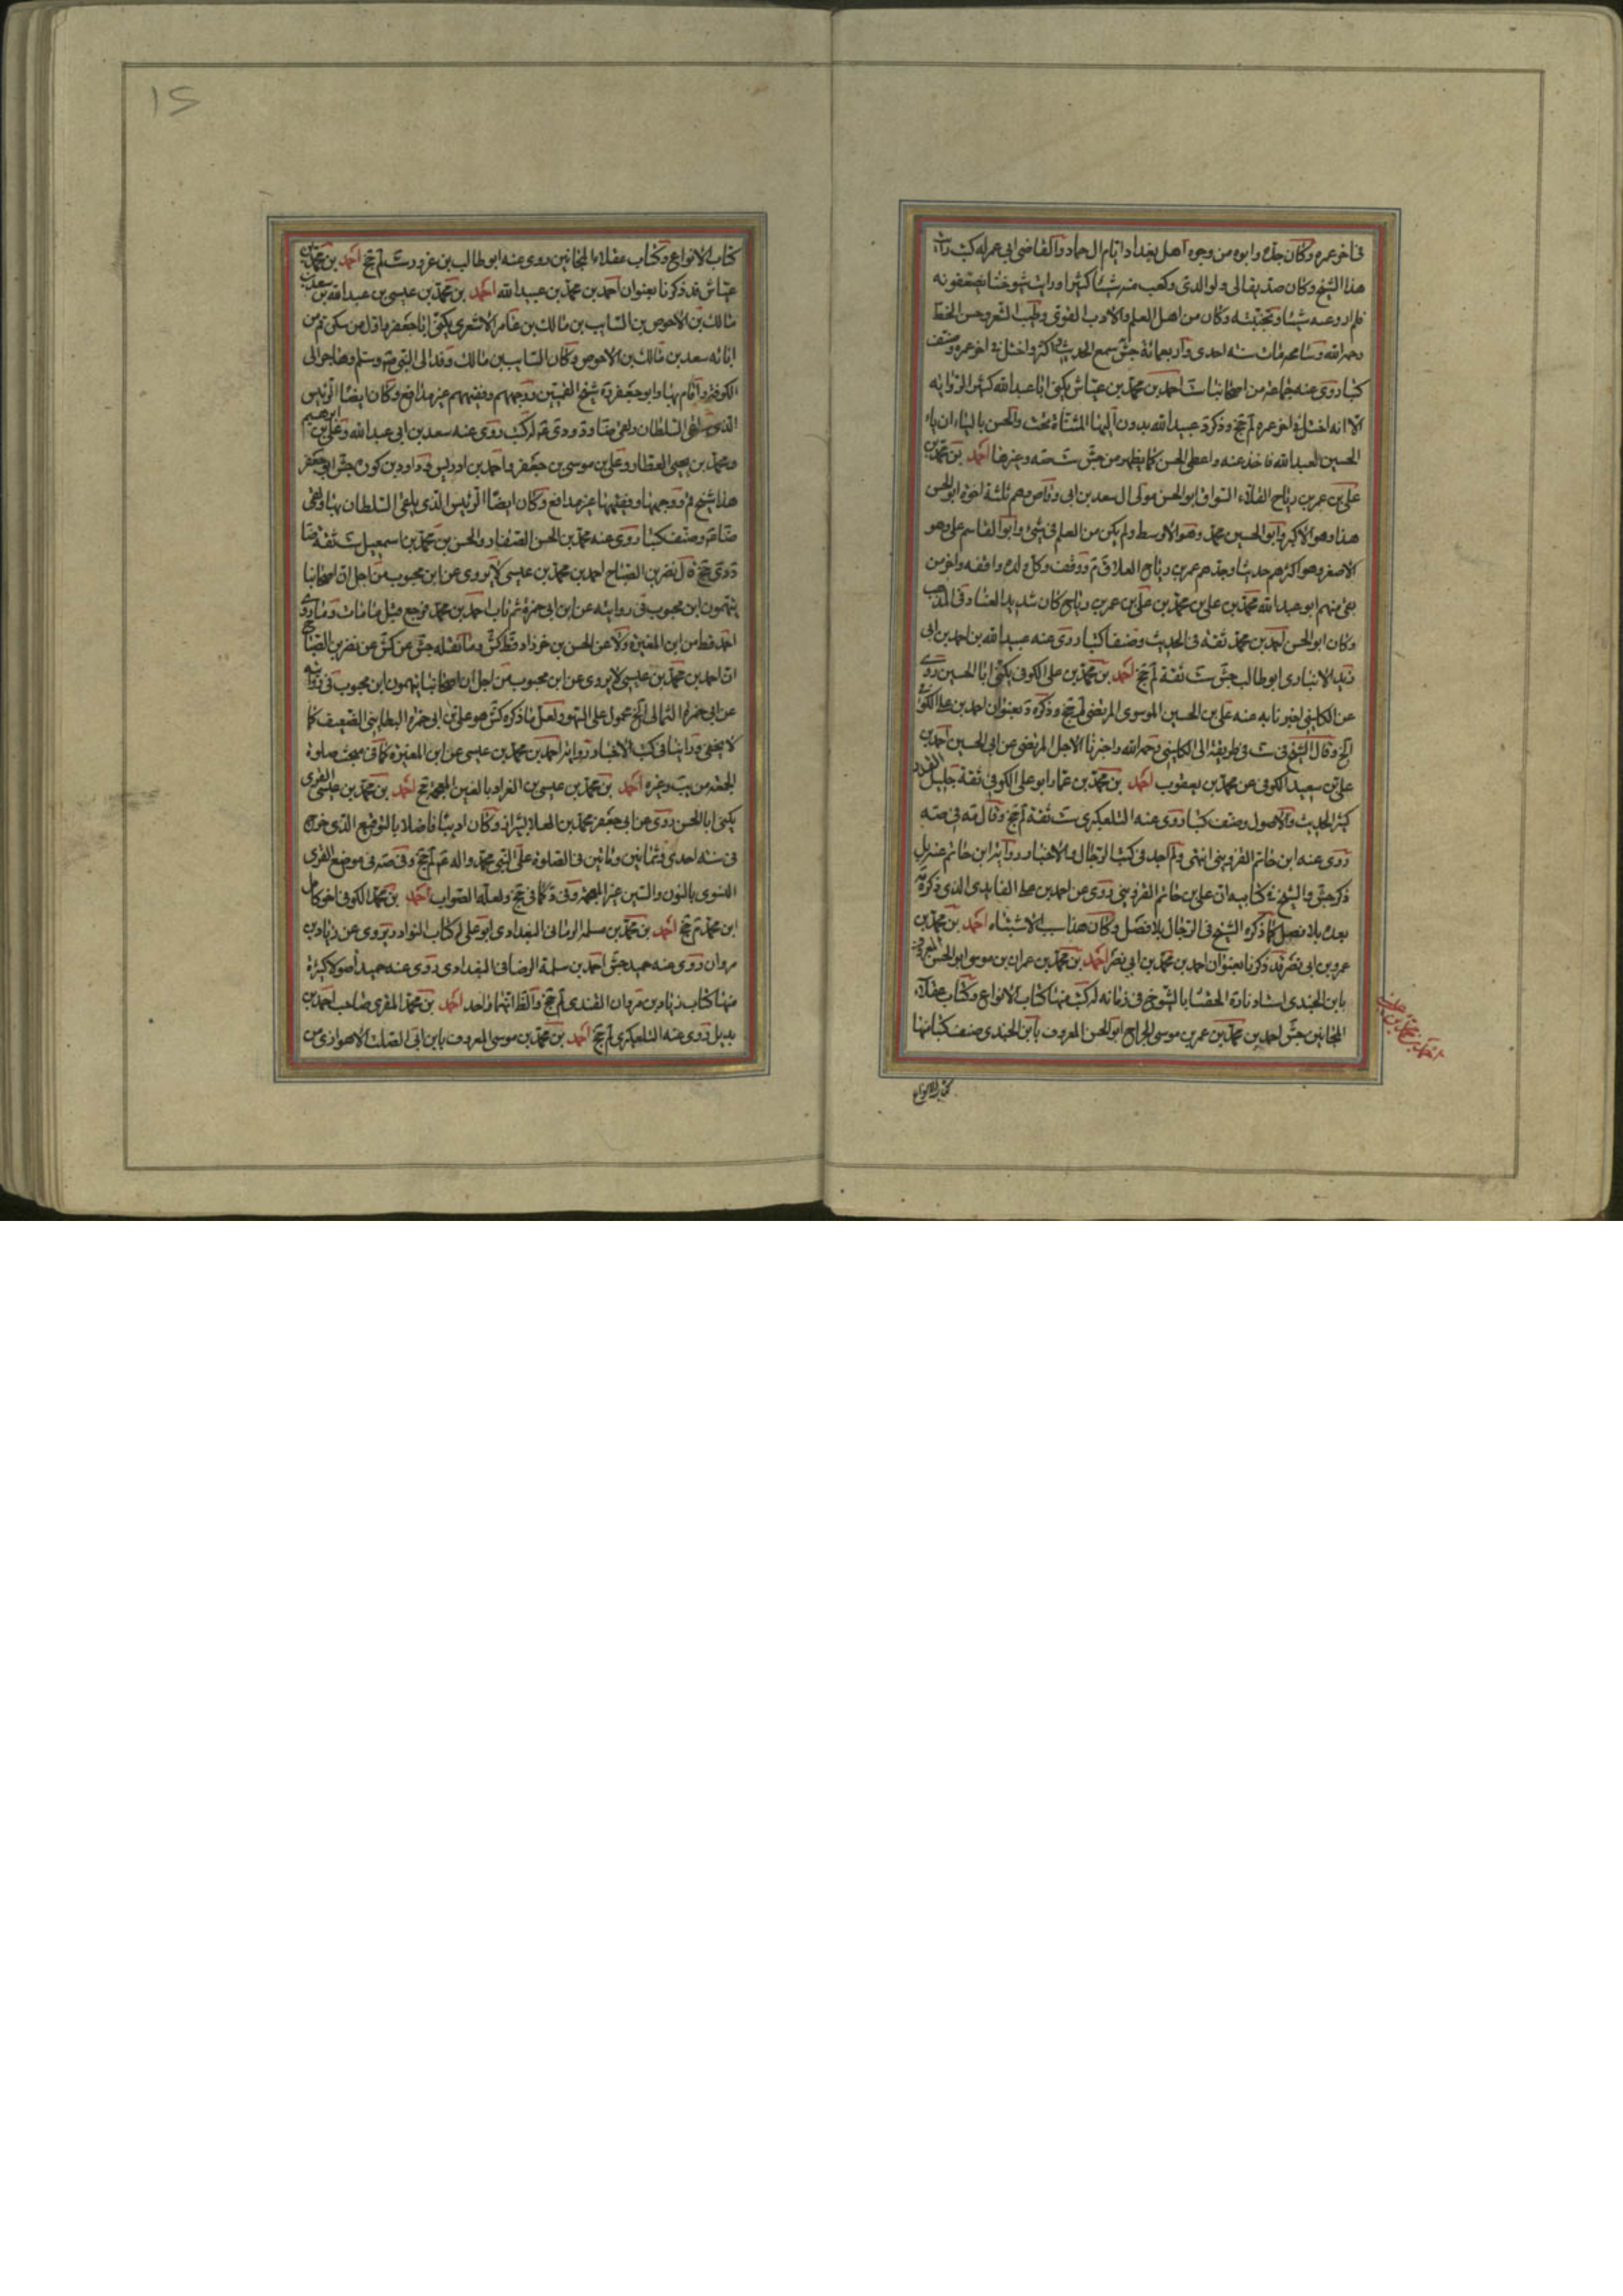 في اخر عمره وكان جده وابوه من وجوه اهل بغداد ايام ال حماد والقاضي ابي عمر له كتب رايت
هذا الشيخ وكان صديقا لي ولوالدي وسمعت منه شيئا كثيرا ورايت شيوخنا يضعفونه
فلم ارو عنه شيئا وتجنبته وكان من اهل العلم والادب القوي وطيب الشعر وحسن الخط
رحمه الله وسامحه مات سنة احدى واربعمائة جش سمع الحديث واكثر واختل في اخر عمره وصنف
كتبا روى عنه جماعة من اصحابنا ست احمد بن محمد بن عياش يكنى ابا عبد الله كثير الرواية
الا انه اختل في اخر عمره لم جخ وذكره د عبيد الله بدون اليها المثناة تحت والحسن بالياء ان باء
الحسين لعبد الله فاخذ عنه واعطى الحسن كما يظهر من جش ست صه وغيرها احمد بن محمد بن
علي بن عمر بن رياح القلاء السواق ابو الحسن مولى ال سعد بن ابي وقاص وهم ثلثة اخوة ابو الحسن
هذا وهو الاكبر وابو الحسين محمد وهو الاوسط ولم يكن من العلم في شيء وابو القاسم علي وهو
الاصغر وهو اكثرهم حديثا وجدهم عمر بن رياح القلا ق م ووقف وكل ولده واقفه واخر من
بقي منهم ابو عبد الله محمد بن علي بن محمد بن علي بن عمر بن رياح كان شديد العناد في المذهب
وكان ابو الحسن احمد بن محمد ثقة في الحديث وصنف كتبا روى عنه عبيد الله بن احمد بن ابي
زيد الانباري ابو طالب جش ست ثقة لم جخ احمد بن محمد بن علي الكوفي يكنى ابا الحسين روى
عن الكليني اخبرنا به عنه علي بن الحسين الموسوي المرتضى لم جخ وذكره د بعنوان احمد بن علي الكوفي
الخ وقال الشيخ في ست في طريقه الى الكليني رحمه الله واخبرنا الاجل المرتضى عن ابي الحسين احمد بن
علي بن سعيد الكوفي عن محمد بن يعقوب احمد بن محمد بن عمار ابو علي الكوفي ثقة جليل القدر
كثير الحديث والاصول وصنف كتبا روى عنه التلعكبري ست ثقة لم جخ وقال مه في صه
روى عنه ابن حاتم القزويني انتهى ولم اجد في كتب الرجال والاخبار رواية ابن حاتم عنه بل
ذكر جش والشيخ في كتابيه ان علي بن حاتم القزويني روى عن احمد بن علي الفايدي الذي ذكره مه
بعده بلا فصل كما ذكره الشيخ في الرجال بلا فصل وكان هذا سبب الاشتباه احمد بن محمد بن
عمرو بن ابي نصر قد ذكرنا بعنوان احمد بن محمد بن ابي نصر احمد بن محمد بن عمران بن موسى ابو الحسن المعروف
بابن الجندي استادنا ره الحقنا بالشيوخ في زمانه له كتب منها كتاب الانواع وكتاب عقلاء
المجانين جش احمد بن محمد بن عمر بن موسى الجراح ابو الحسن المعروف بابن الجندي صنف كتبا منها
كتاب الانواع
كتاب الانواع وكتاب عقلاء المجانين روى عنه ابو طالب بن عزور ست لم جخ احمد بن محمد بن
عياش قد ذكرنا بعنوان احمد بن محمد بن عبيد الله احمد بن محمد بن عيسى بن عبد الله بن سعد بن
مالك بن الاحوص بن السايب بن مالك بن عامر الاشعري يكنى ابا جعفر واول من سكن قم من
ابائه سعد بن مالك بن الاحوص وكان السايب بن مالك وفد الى النبي ص وسلم وهاجر الى
الكوفة واقام بها وابو جعفر ره شيخ القميين ووجههم وفقيههم غير مدافع وكان ايضا الرئيس
الذي يلقى السلطان ولقي ضا ود ودي له كتب روى عنه سعد بن ابي عبد الله وعلي بن ابرهيم
ومحمد بن يحيى العطار وعلي بن موسى بن جعفر واحمد بن ادريس وداود بن كورة جش ابو جعفر
هذا شيخ قم ووجهها وفقيهها غير مدافع وكان ايضا الرئيس الذي يلقى السلطان بها ولقي
ضا ع وصنف كتبا روى عنه محمد بن الحسن الصفار والحسن بن محمد بن اسمعيل ست ثقة ضا
د دي جخ قال نصر بن الصباح احمد بن محمد بن عيسى لا يروي عن ابن محبوب من اجل ان اصحابنا
يتهمون ابن محبوب في روايته عن ابن ابي حمزة ثم تاب احمد بن محمد فرجع قبل ما مات وما روى
احمد قط من ابن المغيرة ولا عن الحسن بن خرزاد قط كش وما نقله جش عن كش عن نصر بن الصباح
ان احمد بن محمد بن عيسى لا يروي عن ابن محبوب من اجل ان اصحابنا يتهمون ابن محبوب في روايته
عن ابي حمزة الثمالي الخ محمول على السهو ولعل ما ذكره كش هو علي بن ابي حمزة البطايني الضعيف كما
لا يخفى وراينا في كتب الاخبار رواية احمد بن محمد بن عيسى عن ابن المغيرة كما في مبحث صلوة
الجمعة من يب وغيره احمد بن محمد بن عيسى بن الغراد بالغين المعجمة جخ احمد بن محمد بن عيسى القسري
يكنى ابا الحسن روى عن ابي جعفر محمد بن العلا بشيراز وكان اديبا فاضلا بالتوقيع الذي خرج
في سنة احدى وثمانين ومائتين في الصلوة على النبي محمد واله ع لم جخ وفي صه في موضع القسري
النسوي بالنون والسين غير المعجمة وفي د كما في جخ ولعله الصواب احمد بن محمد الكوفي اخو كامل
ابن محمد م جخ احمد بن محمد بن مسلمة الرماني البغدادي ابو علي له كتاب النوادر يروي عن زياد بن
مروان روى عنه حميد جش احمد بن سلمة الرصافي البغدادي روى عنه حميد اصولا كثيرة
منها كتاب زياد بن مروان القندي لم جخ والظ انهما واحد احمد بن محمد المقري صاحب احمد بن
بديل روى عنه التلعكبري لم جخ احمد بن محمد بن موسى المعروف بابن ابي الصلت الاهوازي من